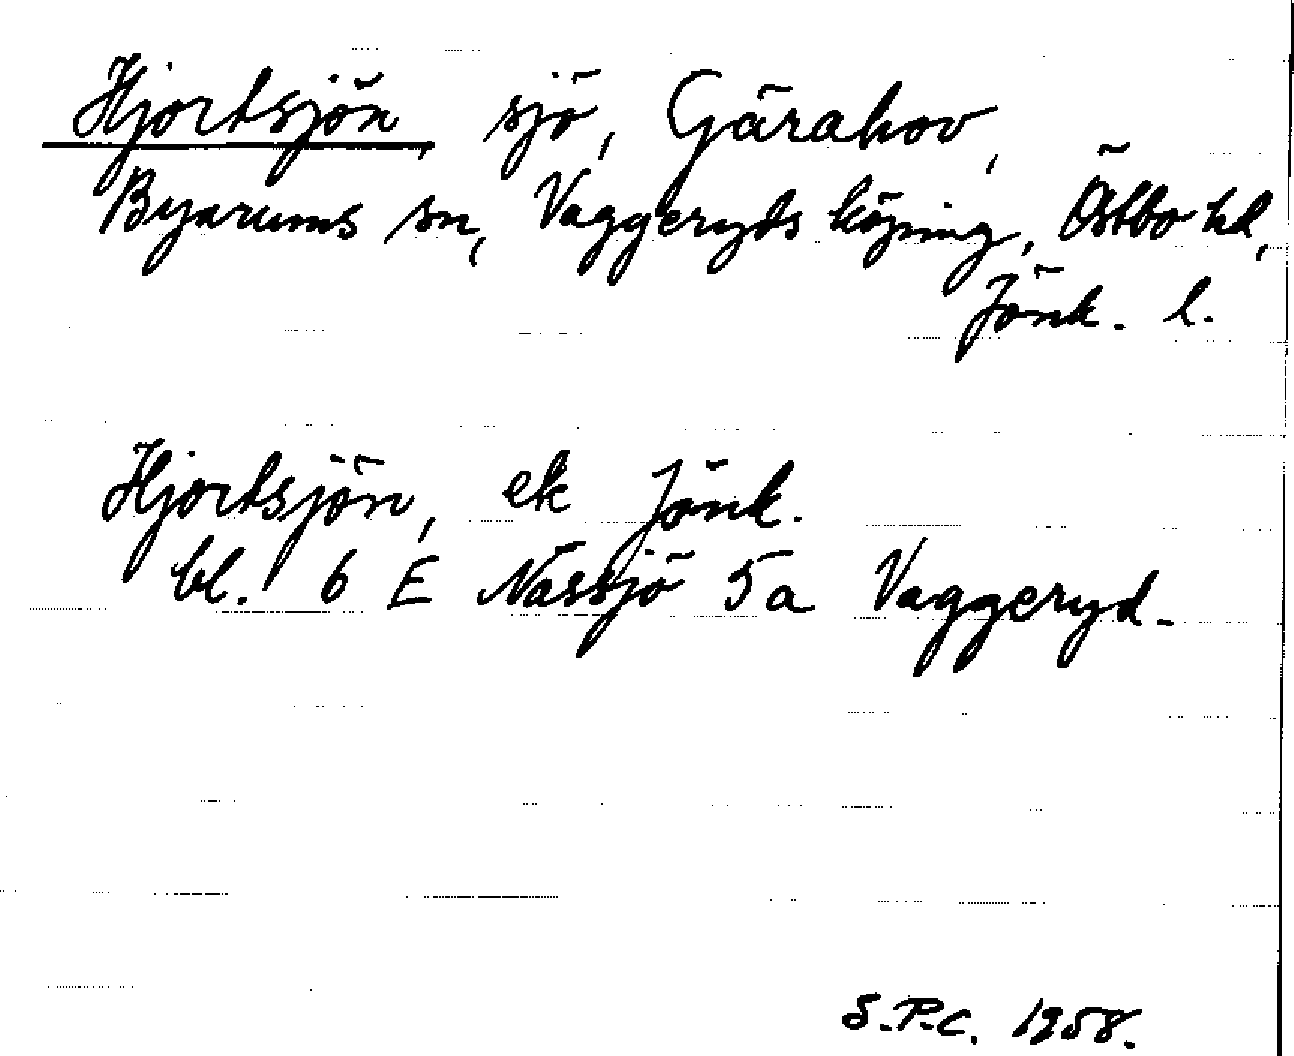 Hjortsjön, sjö, Gärahov,
Byarums sn, Vaggeryds köping, Östbo hd,
Jönk. l.
Hjortsjön, ek Jönk.
bl. 6 E Nässjö 5a Vaggeryd.
S.P.C. 1958.